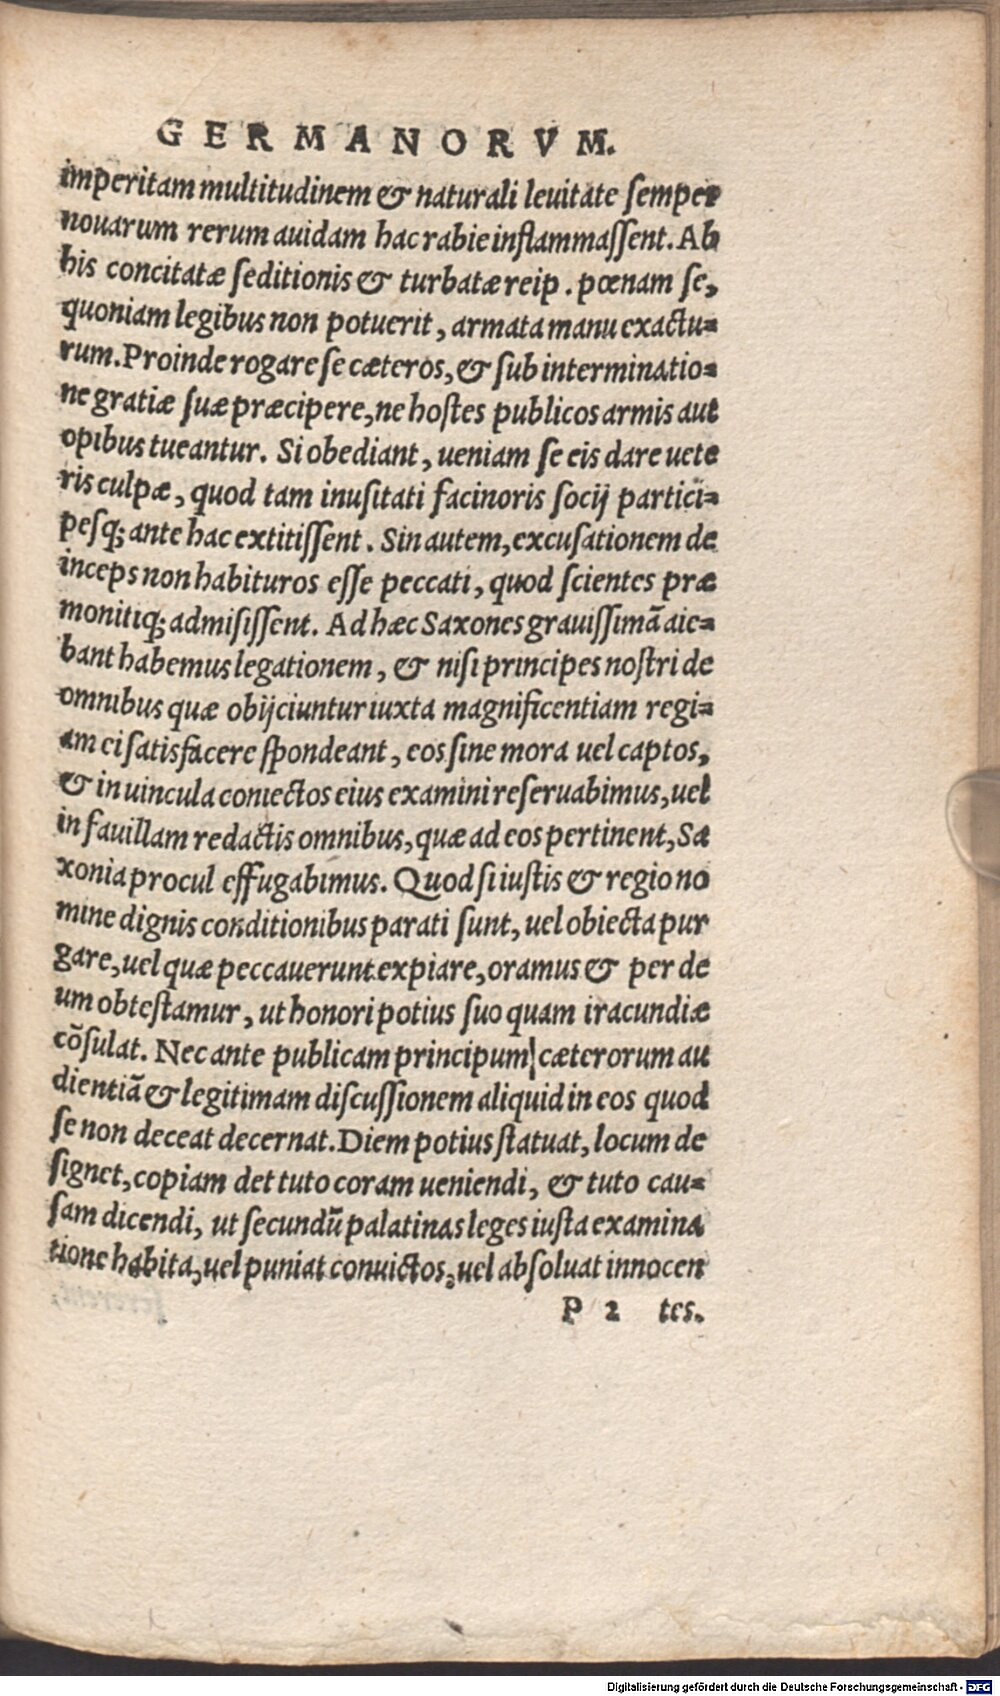 GERMANORVM.
imperitam multitudinem & naturali leuitate semper
nouarum rerum auidam hac rabie inflammassent. Ab
his concitatæ seditionis & turbatæ reip. pœnam se,
quoniam legibus non potuerit, armata manu exactu=
rum. Proinde rogare se cæteros, & sub interminatio=
ne gratiæ suæ præcipere, ne hostes publicos armis aut
opibus tueantur. Si obediant, ueniam se eis dare uete
ris culpæ, quod tam inusitati facinoris socij partici=
pesq; ante hac extitissent. Sin autem, excusationem de
inceps non habituros esse peccati, quod scientes præ
monitiq; admisissent. Ad hæc Saxones grauissimā aie=
bant habemus legationem, & nisi principes nostri de
omnibus quæ obijciuntur iuxta magnificentiam regi=
am ei satisfacere spondeant, eos sine mora uel captos,
& in uincula coniectos eius examini reseruabimus, uel
in fauillam redactis omnibus, quæ ad eos pertinent, Sa
xonia procul effugabimus. Quod si iustis & regio no
mine dignis conditionibus parati sunt, uel obiecta pur
gare, uel quæ peccauerunt expiare, oramus & per de
um obtestamur, ut honori potius suo quam iracundiæ
cōsulat. Nec ante publicam principum cæterorum au
dientiā & legitimam discussionem aliquid in eos quod
se non deceat decernat. Diem potius statuat, locum de
signet, copiam det tuto coram ueniendi, & tuto cau=
sam dicendi, ut secundū palatinas leges iusta examina
tione habita, uel puniat conuictos, uel absoluat innocen
P 2 tes.
Digitalisierung gefördert durch die Deutsche Forschungsgemeinschaft - DFG